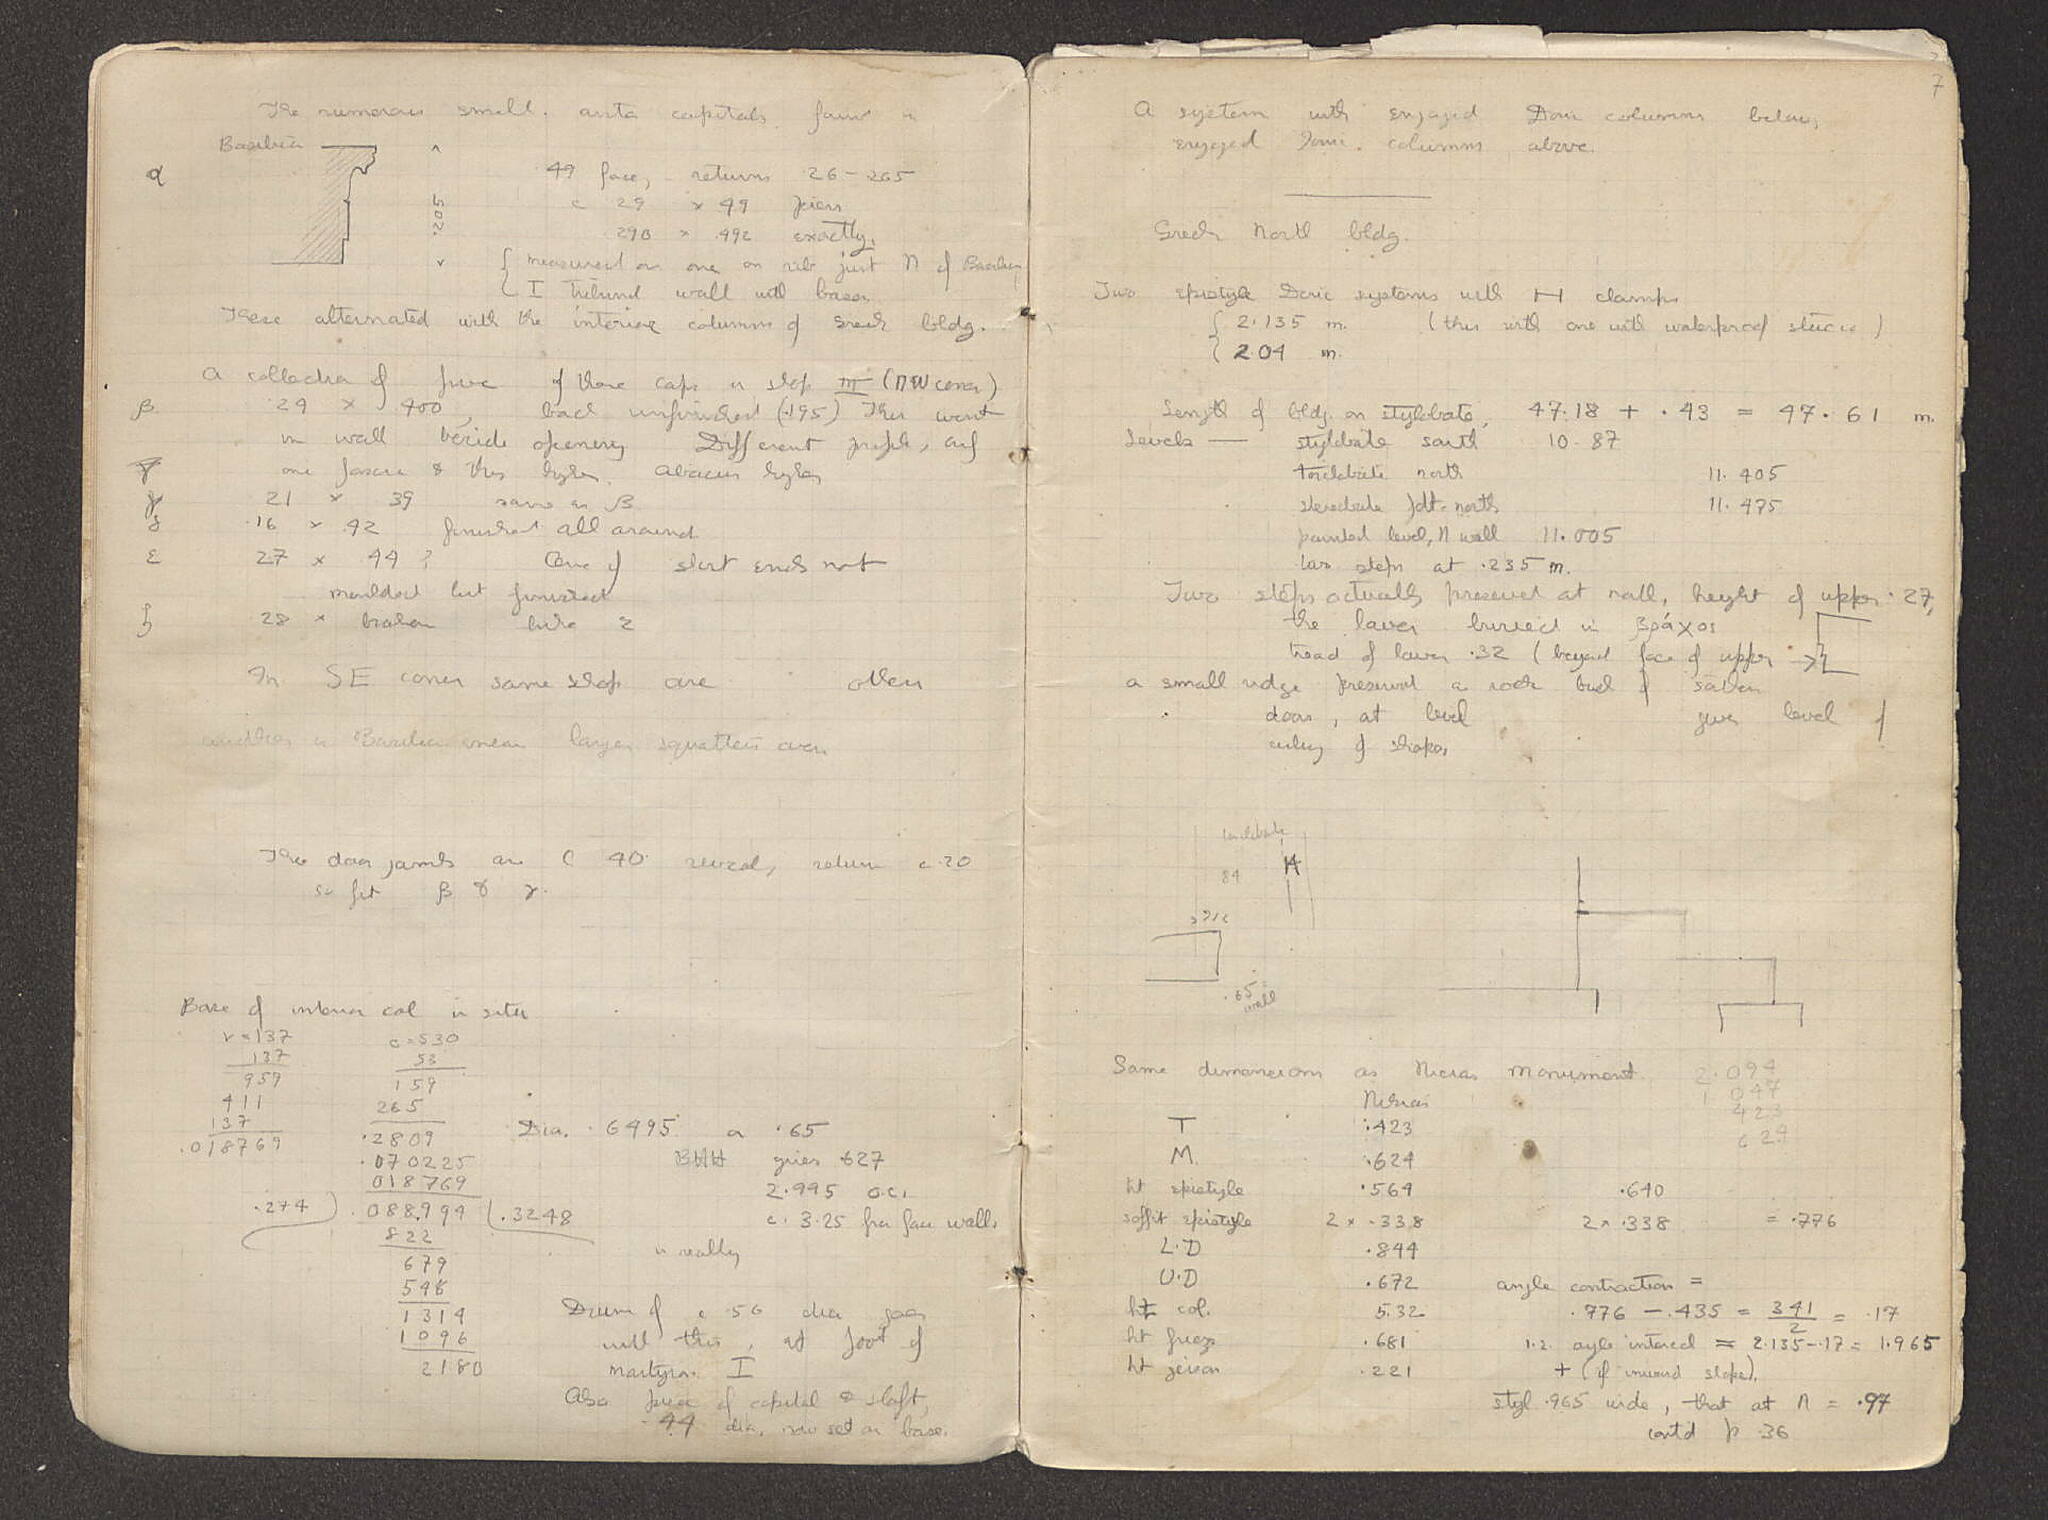 The numerous small anta capitals found in
Basilica
α
.205
49 face, returns 26 - 265
c 29 × 49 piers
.290 × .492 exactly,
measured on one on site just N of Basilica
I behind wall with bases
These alternated with the interior columns of Greek bldg.
A collection of five of these caps in shop III (NW corner)
β. 29 × 400, back unfinished (.195) This went
in wall beside opening Different profile, only
one fascia & this higher. Abacus higher
γ 21 × 39 same as β
δ .16 × .42 finished all around
ε 27 × 44 ? One of short ends not
moulded but finished
ζ 28 × broken like ε
In SE corner same shop are other
another in Basilica larger squatter
The door jambs are c 40 reveal, return c .20
so fit β & γ.
Base of interior col in situ
v = 137 c = 530
137 53
959 159
411 265
137 .2809
.018769 .070225
018769
.274 ) .088994 ( .3248
822
679
548
1314
1096
2180
Dia. .6495 or .65
BHH gives 627
2.995 o.c.
c. 3.25 from face wall.
is really
Drum of c .56 dia goes
with this, at foot of
martyrion I
Also piece of capital & shaft,
.44 dia, now set on base.
7
A system with engaged Doric columns below,
engaged Ionic columns above.
Greek North bldg.
Two epistyle Doric systems with H clamps
2.135 m. (this with one with waterproof stucco)
2.04 m.
Length of bldg. on stylobate, 47.18 + .43 = 47.61 m.
Levels — stylobate south 10.87
toichobate north 11.405
stereobate fdt. north 11.475
painted level, N wall 11.005
two steps at .235 m.
Two steps actually preserved at wall, height of upper .27,
the lower buried in βράχος
tread of lower .32 (beyond face of upper →
a small ridge preserved in rock back of
door, at level gives level of
ceiling of shops,
toichobate
84
.65 =
wall
Same dimensions as Nicias monument 2.094
1 047
423
624
Nikias
T .423
M. .624
ht epistyle .564 .640
soffit epistyle 2 × .338 2 × .338 = .776
L.D .844
U.D .672 angle contraction =
ht col. 5.32 .776 - .435 = 341/2 = .17
ht frieze .681 i.e. angle interval = 2.135 - .17 = 1.965
ht geison .221 + (if inward slope).
styl .965 wide, that at N = .97
cont'd p .36